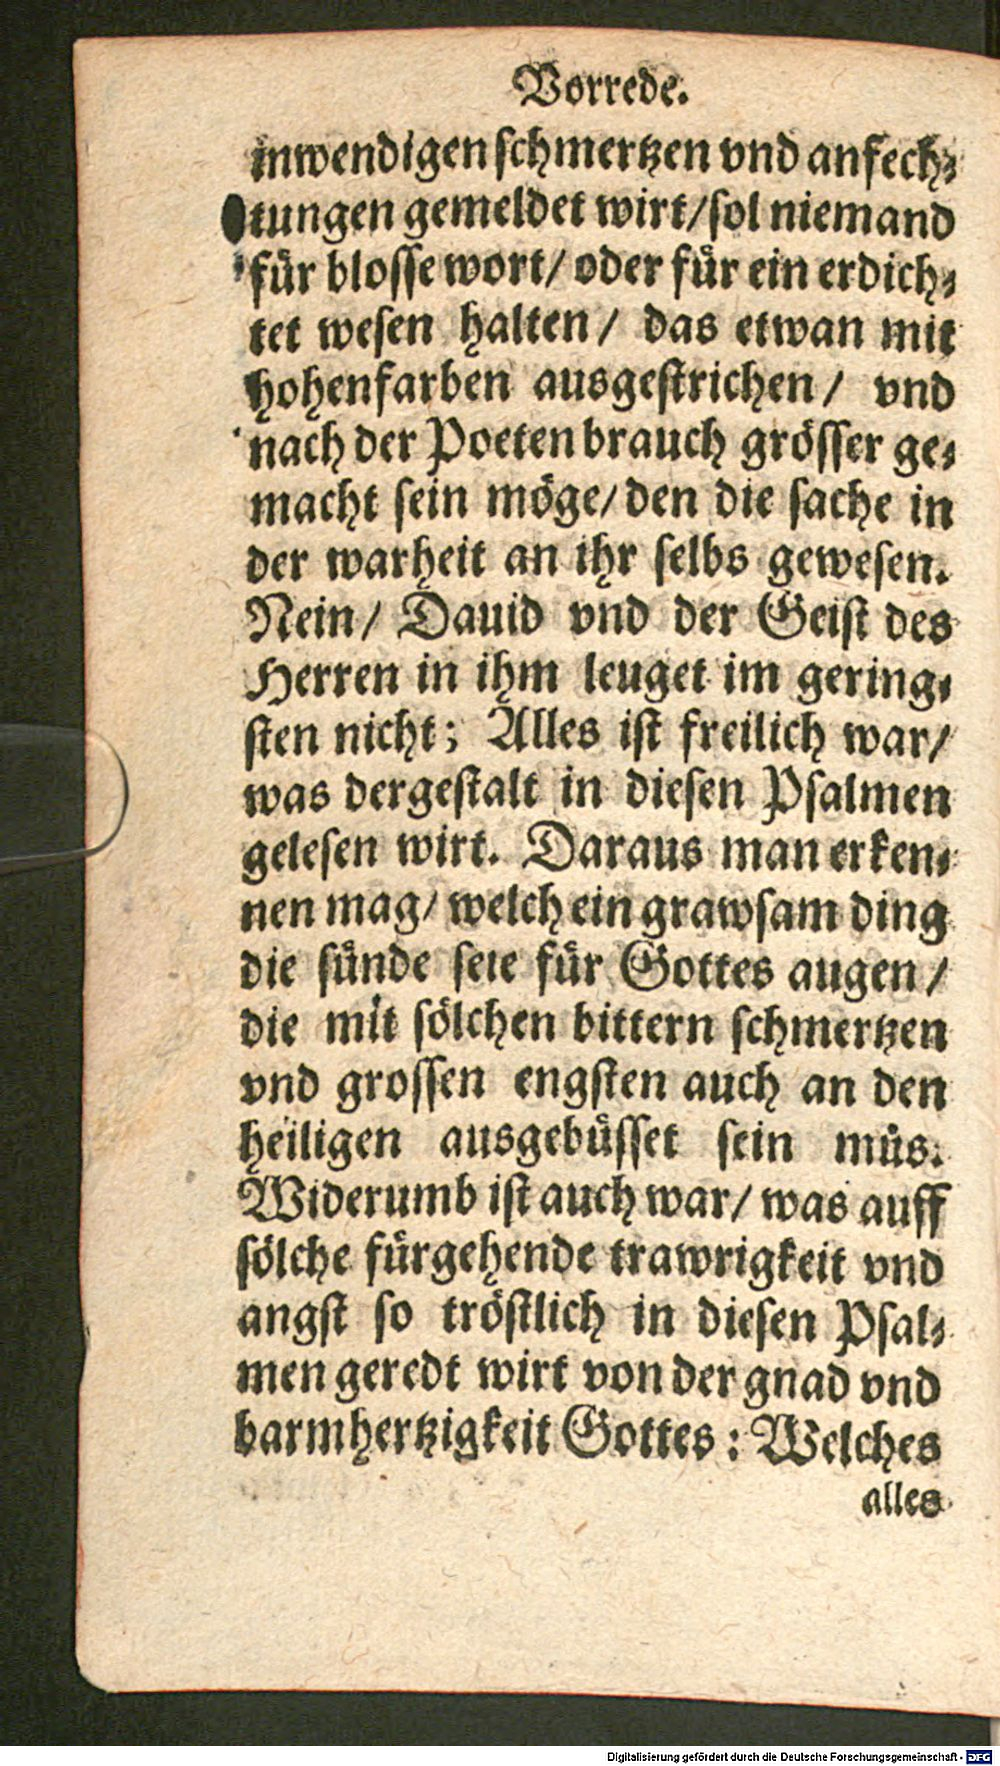 Vorrede.
inwendigen schmertzen vnd anfech⸗
tungen gemeldet wirt/sol niemand
für blosse wort/ oder für ein erdich⸗
tet wesen halten/ das etwan mit
hohenfarben ausgestrichen/ vnd
nach der Poeten brauch grösser ge⸗
macht sein möge/den die sache in
der warheit an ihr selbs gewesen.
Nein/ Dauid vnd der Geist des
Herren in ihm leuget im gering⸗
sten nicht; Alles ist freilich war/
was dergestalt in diesen Psalmen
gelesen wirt. Daraus man erken⸗
nen mag/ welch ein grawsam ding
die sünde seie für Gottes augen/
die mit sölchen bittern schmertzen
vnd grossen engsten auch an den
heiligen ausgebüsset sein müs.
Widerumb ist auch war/ was auff
sölche fürgehende trawrigkeit vnd
angst so tröstlich in diesen Psal⸗
men geredt wirt von der gnad vnd
barmhertzigkeit Gottes: Welches
alles
Digitalisierung gefördert durch die Deutsche Forschungsgemeinschaft - DFG